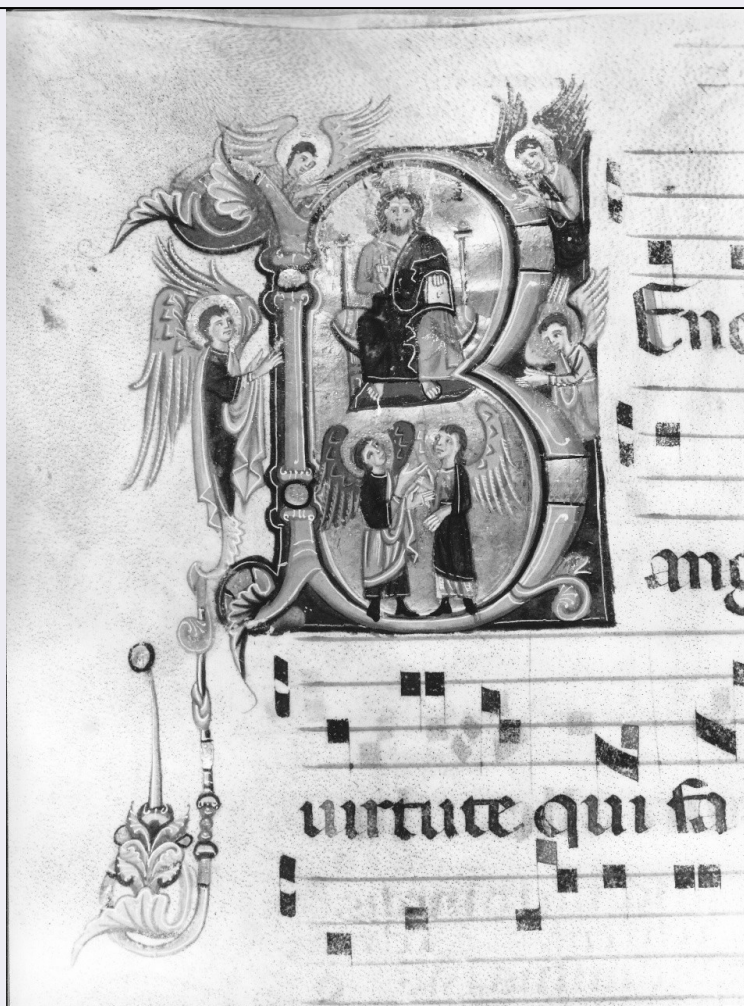 BEne
ang
uirtute qui fa